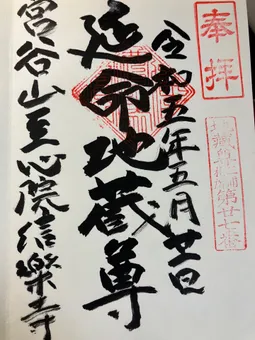 奉拝
第廿七番
令和五年五月廿一日
延命地蔵尊
宮谷山至心院信樂寺